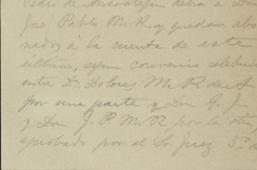 debia a Don
José Pablo McR y quedan abo
nados á la cuenta de este
último, segun convenio celebrado
entre Da. Dolores McR de A
por una parte y Don G. J.
y Don J. P. McR por la otra,
aprobado por el Sr. Juez 5º